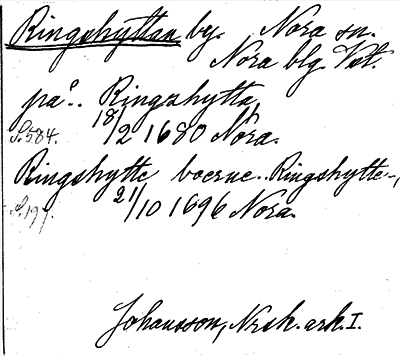 Ringshyttan by. Nora sn.
Nora blg. Vstl.
på.. Ringzhytta,
S. 584. 18/2 1680 Nora.
Ringshytte boerne. Ringshytte-,
S. 197. 21/10 1696 Nora.
Johansson, Nrsk. ark. I.